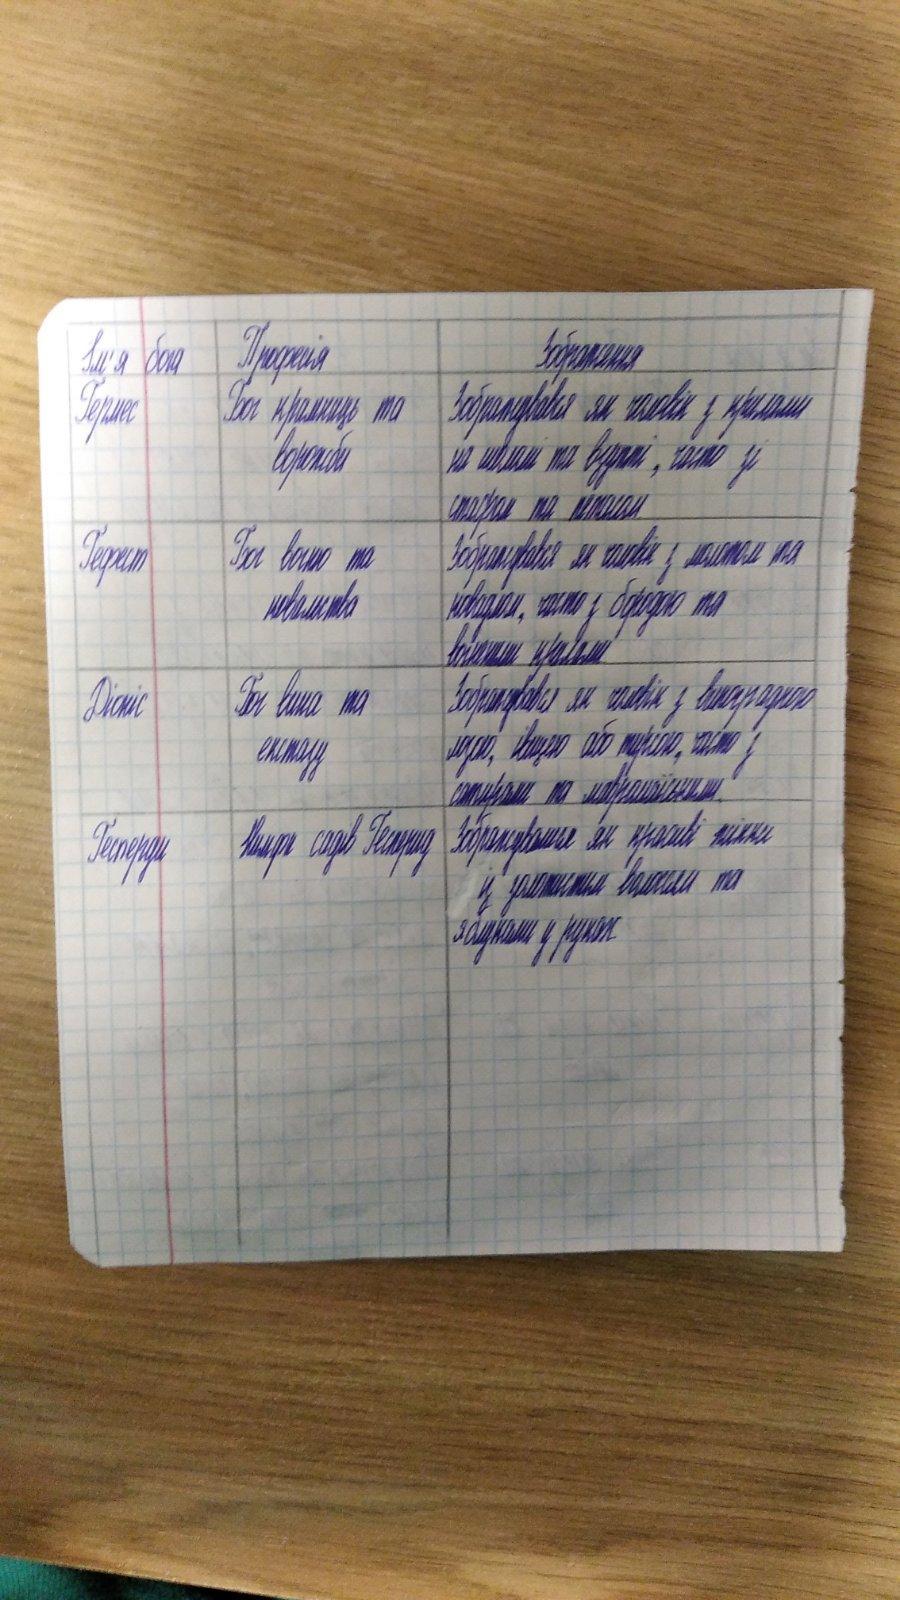 Ім'я бога Професія Зображення
Гермес Бог крамниць та Зображувався як чоловік з крилами
ворожби на шоломі та взутті, часто зі
стафом та петасом
Гефест Бог вогню та Зображувався як чоловік з молотом та
ковальства ковадлом, часто з бородою та
вогняними крилами
Діоніс Бог вина та Зображувався як чоловік з виноградною
екстазу лозою, або часто з
сатирами та
Гесперди Німфи садів Гесперид Зображувалися як красиві жінки
із золотистим волоссям та
яблуками у руках